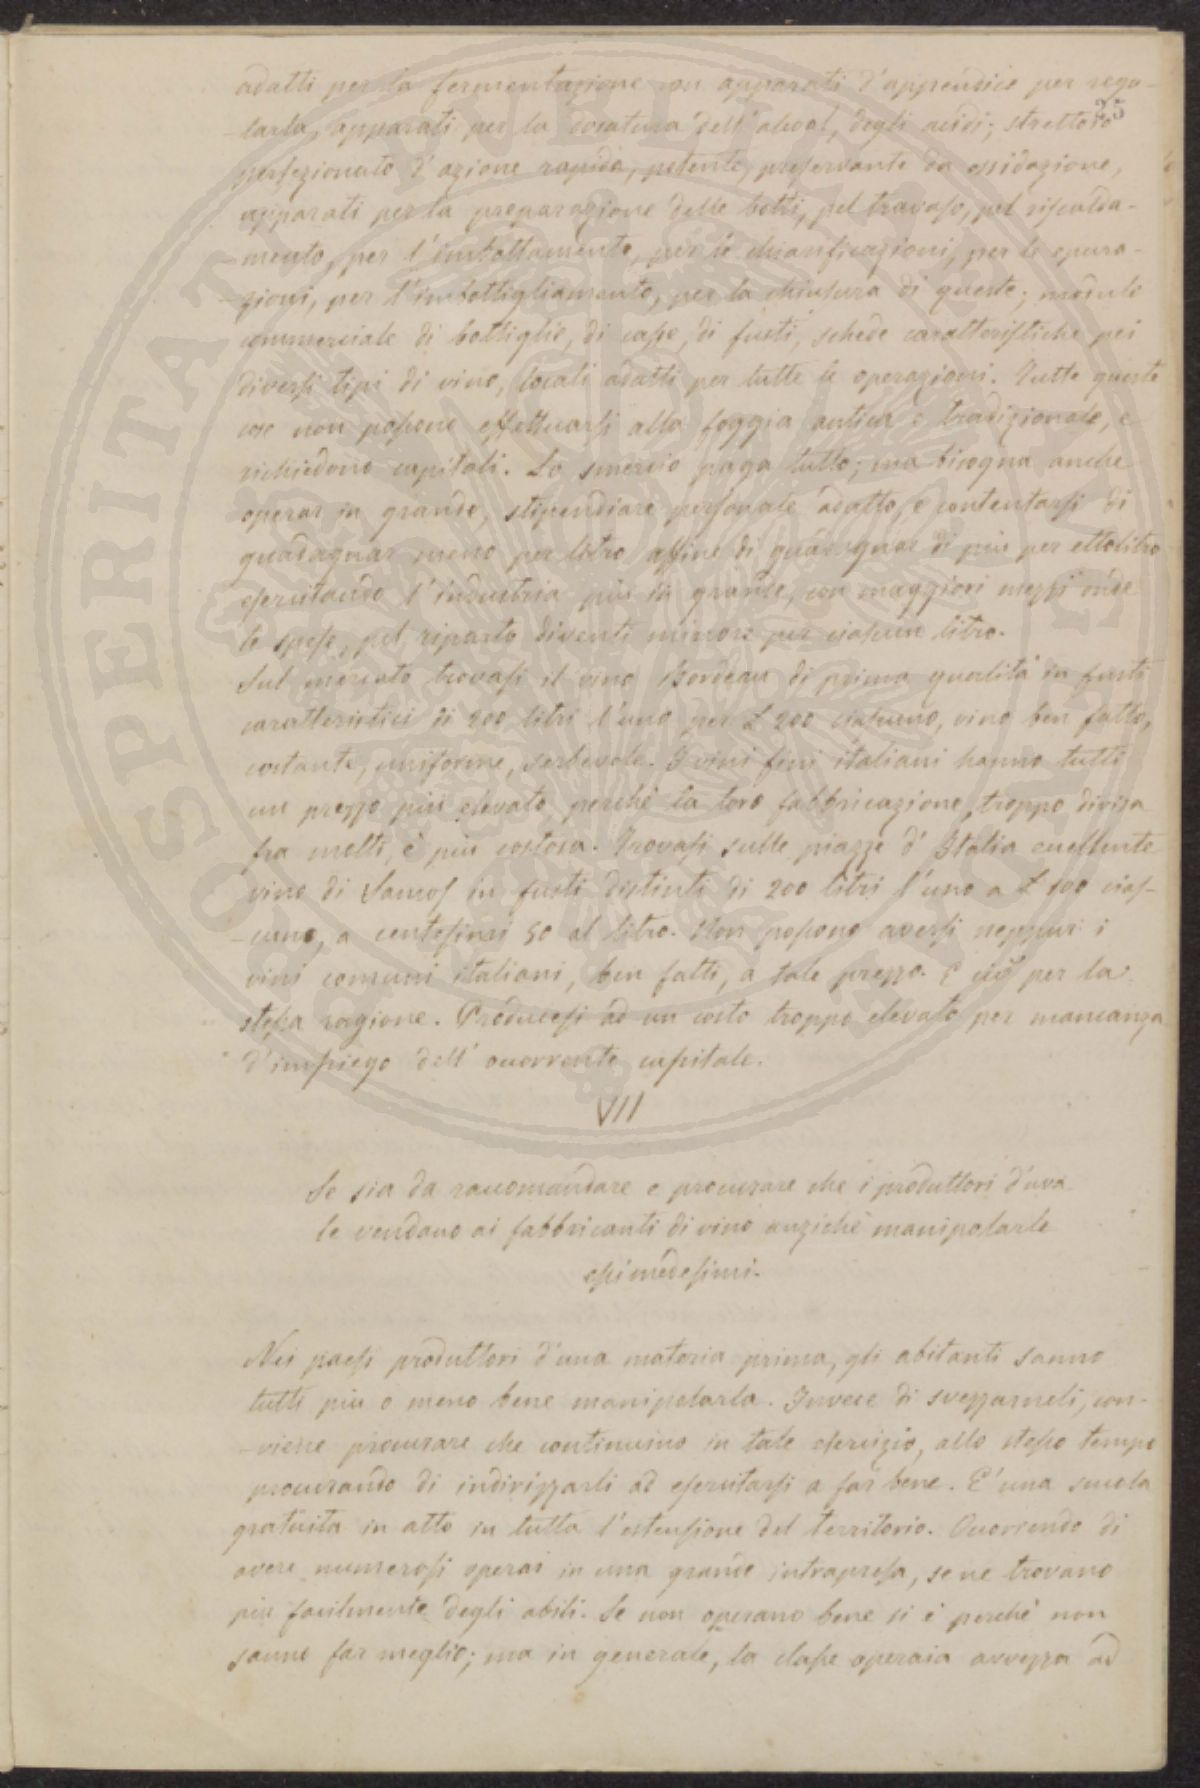 adatti per la fermentazione con apparati d'appendice per rego-
-larla, apparati per la dosatura dell'alcool, degli acidi; strettoio
25
perfezionato d'azione rapida, potente, preservante da ossidazione,
apparati per la preparazione delle botti, pel travaso, pel riscalda-
-mento, per l'imbottamento, per le chiarificazioni, per le epura-
-zioni, per l'imbottigliamento, per la chiusura di queste; module
commerciale di bottiglie, di casse, di fusti, schede caratteristiche pei
diversi tipi di vino, locali adatti per tutte le operazioni. Tutte queste
cose non possono effettuarsi alla foggia antica e tradizionale, e
richiedono capitali. Lo smercio paga tutto; ma bisogna anche
operar in grande, stipendiare personale adatto, e contentarsi di
guadagnar meno per litro affine di guadagnar di più per ettolitro
esercitando l'industria più in grande, con maggiori mezzi onde
le spese, pel riparto diventi minore per ciascun litro.
Sul mercato trovasi il vino Bordeau di prima qualità in fusti
caratteristici di 200 litri l'uno per £ 200 ciascuno, vino ben fatto,
costante, uniforme, serbevole. I vini fini italiani hanno tutti
un prezzo più elevato, perchè la loro fabbricazione, troppo divisa
fra molti, è più costosa. Trovasi sulle piazze d'Italia eccellente
vino di Samos in fusti distinti di 200 litri l'uno a £ 100 cias-
-cuno, a centesimi 50 al litro. Non possono aversi neppur i
vini comuni italiani, ben fatti, a tale prezzo. E ciò per la
stessa ragione. Producesi ad un costo troppo elevato per mancanza
d'impiego dell'occorrente capitale.
VII
Se sia da raccomandare e procurare che i produttori d'uva
le vendano ai fabbricanti di vino anzichè manipolarle
essi medesimi.
Nei paesi produttori d'una materia prima, gli abitanti sanno
tutti più o meno bene manipolarla. Invece di svezzarneli, con-
-viene procurare che continuino in tale esercizio, allo stesso tempo
procurando di indirizzarli ad esercitarsi a far bene. E' una scuola
gratuita in atto in tutta l'estensione del territorio. Occorrendo di
avere numerosi operai in una grande intrapresa, se ne trovano
più facilmente degli abili. Se non operano bene si è perchè non
sanno far meglio; ma in generale, la classe operaia avvezza ad
PROSPERITATI PUBLICAE AVGENDAE